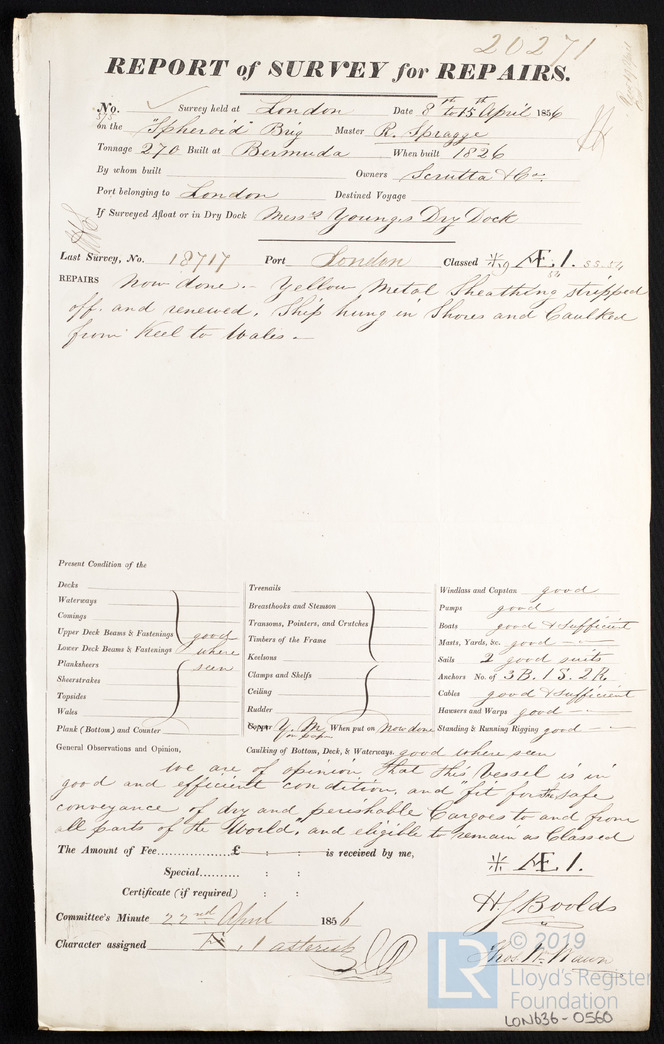 20271
REPORT of SURVEY for REPAIRS.
No. Survey held at London Date 8th to 15th April 1856
on the "Spheroid" Brig Master R. Spragge
Tonnage 270 Built at Bermuda When built 1826
By whom built Owners Scrutta & Co.
Port belonging to London Destined Voyage
If Surveyed Afloat or in Dry Dock Messrs Youngs Dry Dock
Last Survey, No. 18717 Port London Classed Æ 1. 53.54
REPAIRS Now done. - Yellow Metal Sheathing stripped
off. and renewed. Ship hung in Shores and Caulked
from Keel to Wales. -
Present Condition of the
Decks
Waterways
Comings
Upper Deck Beams & Fastenings good
Lower Deck Beams & Fastenings where
Planksheers seen
Sheerstrakes
Topsides
Wales
Plank (Bottom) and Counter
Treenails
Breasthooks and Stemson
Transoms, Pointers, and Crutches
Timbers of the Frame
Keelsons
Clamps and Shelfs
Ceiling
Rudder
Copper Y. M. When put on Now done
on paper
Windlass and Capstan good
Pumps good
Boats good & sufficient
Masts, Yards, &c. good
Sails 2 good suits
Anchors No. of 3 B. 1 S. 2 K.
Cables good & sufficient
Hawsers and Warps good
Standing & Running Rigging good
General Observations and Opinion, Caulking of Bottom, Deck, & Waterways. good where seen
We are of opinion that this Vessel is in
good and efficient condition, and "fit for the safe
conveyance of dry and perishable Cargoes to and from
all parts of the World", and eligible to remain as Classed
The Amount of Fee............... £ : : is received by me,
Æ 1.
Special.......... : :
Certificate (if required) : :
H J Boolds
Committee's Minute 22nd April 1856
Character assigned Æ, 1 asterisk
Thos W. Wawn
© 2019
LR
Lloyd's Register
Foundation
LON636-0560